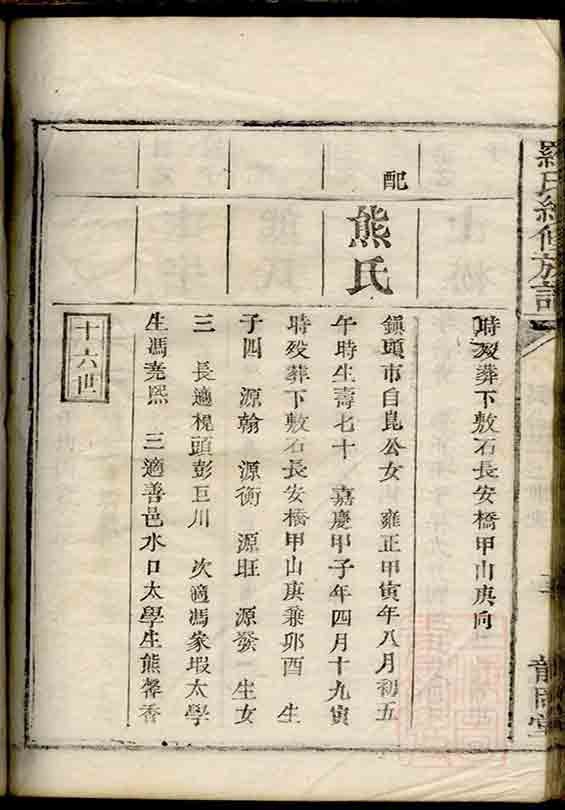 羅氏續修族譜
時歿葬下敷石長安橋甲山庚向
配
熊氏
鎮頭市自昆公女 雍正甲寅年八月初五
午時生壽七十 嘉慶甲子年四月十九寅
時歿葬下敷石長安橋甲山庚兼卯酉 生
子四 源翰 源衡 源旺 源發 生女
三 長適梘頭彭巨川 次適馮家塅太學
生馮堯熙 三適善邑水口太學生熊馨香
十六世